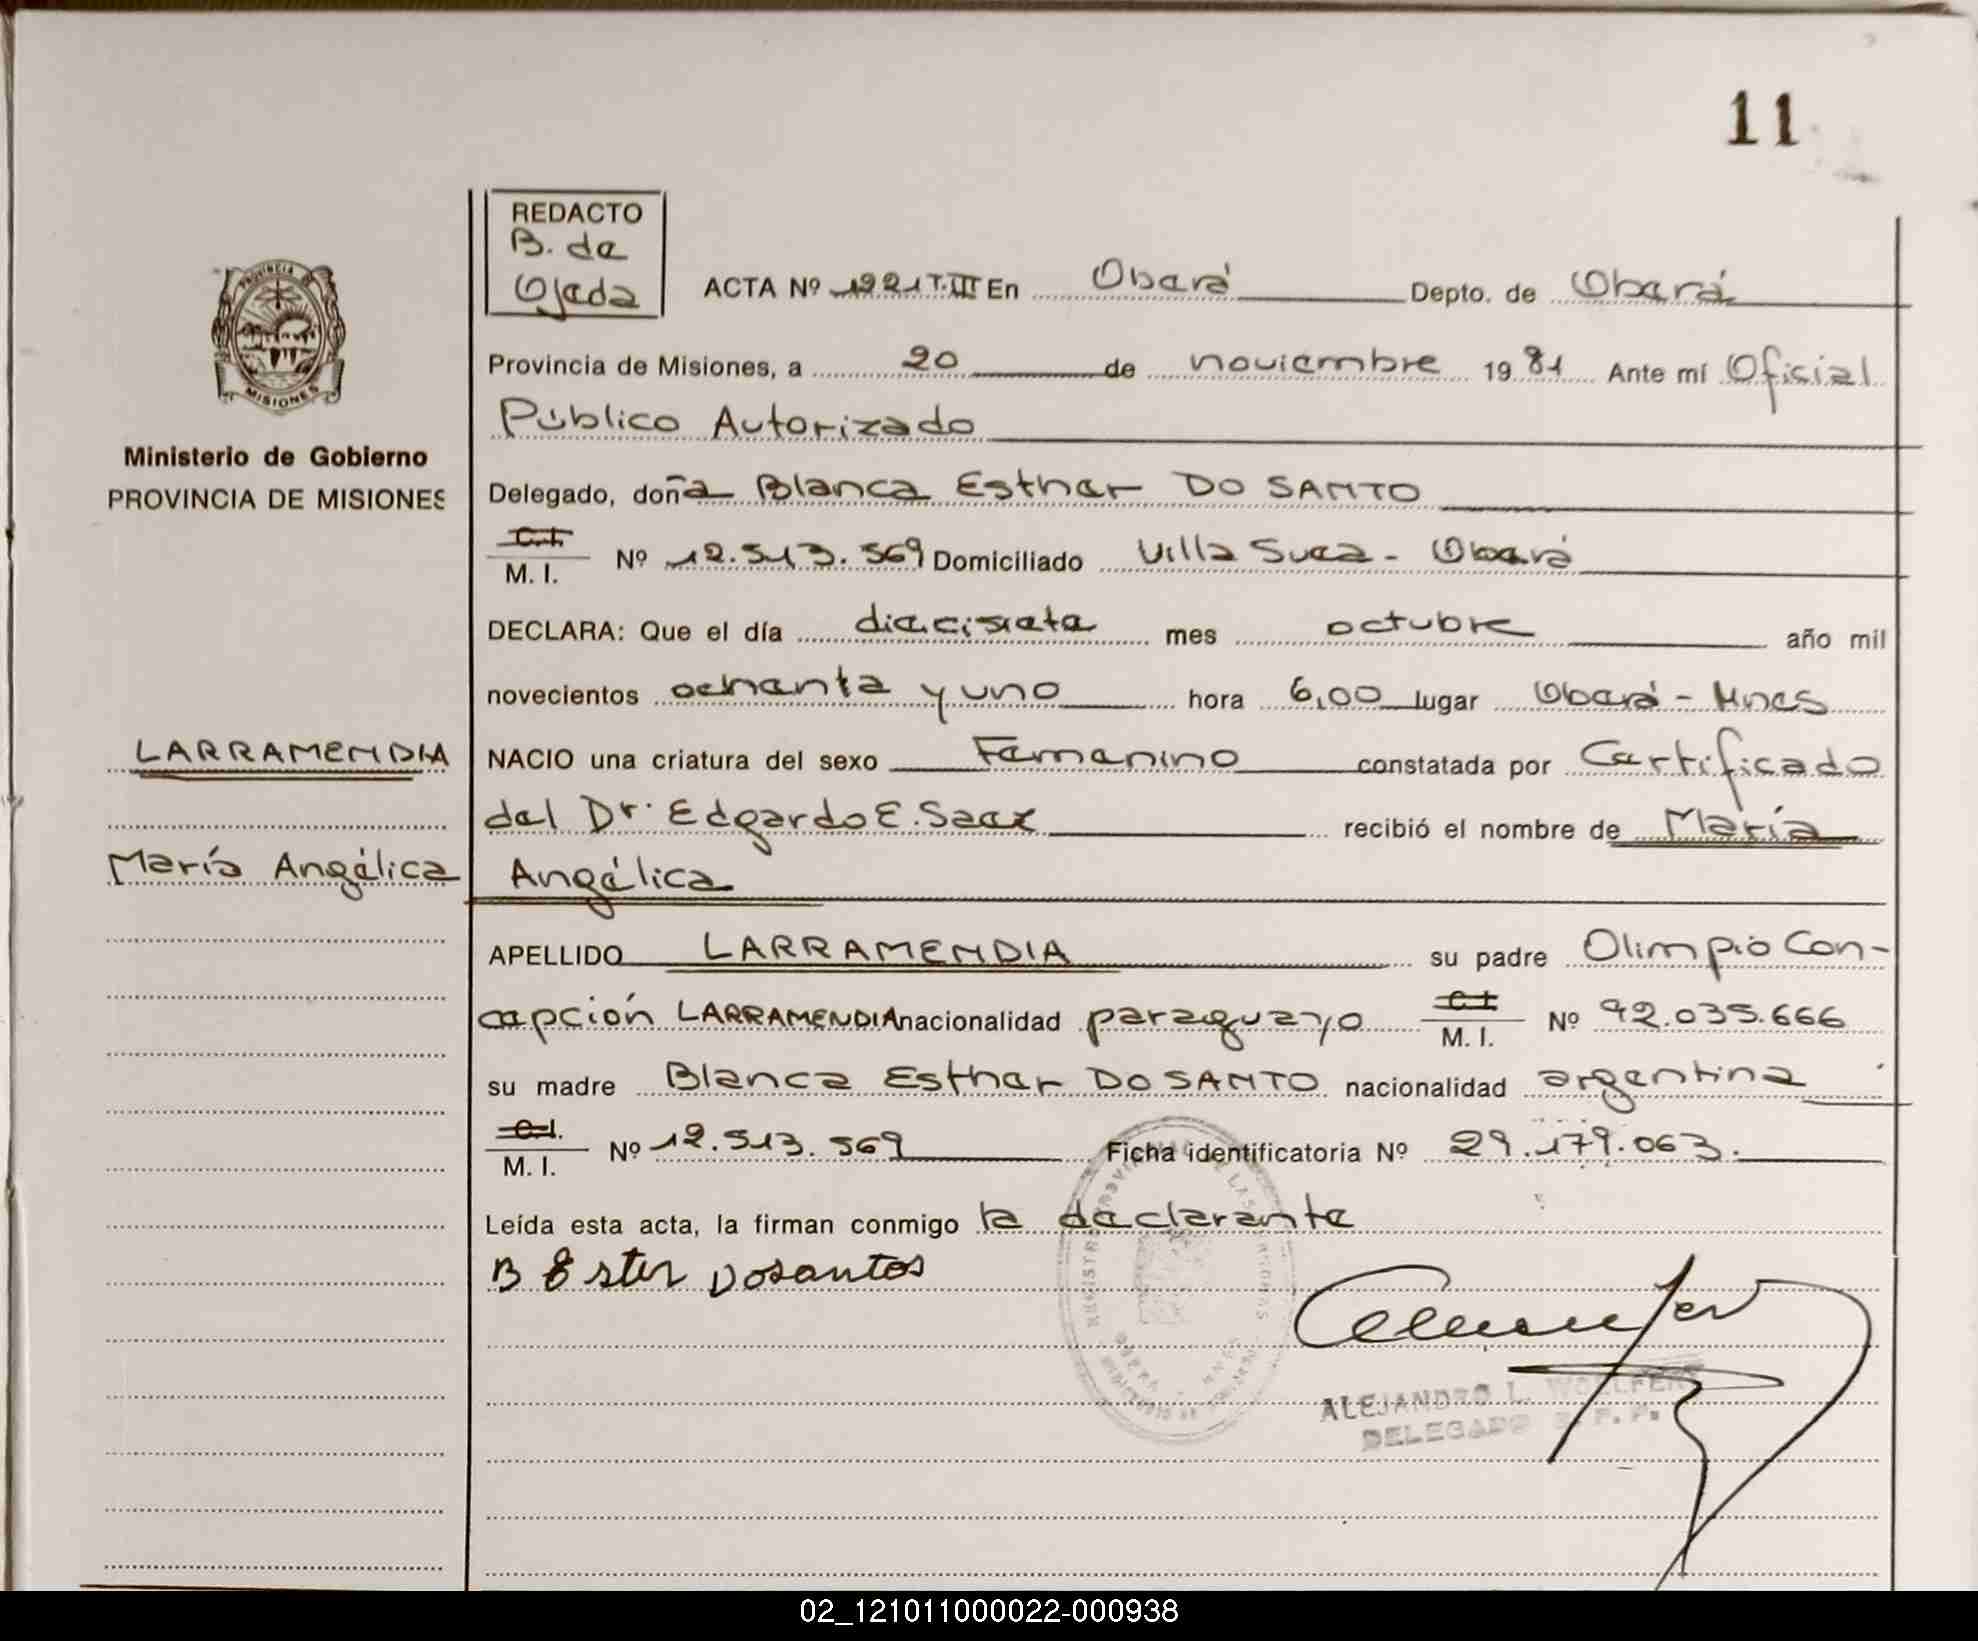 11
REDACTO
B. de
Ojeda
ACTA Nº 1221 T.III En Oberá Depto. de Oberá
Provincia de Misiones, a 20 de noviembre 1981 Ante mí Oficial
Público Autorizado
Delegado, doña Blanca Esther DO SANTO
C.I.
M. I. Nº 12.513.569 Domiciliado Villa Suca - Oberá
DECLARA: Que el día diecisiete mes octubre año mil
novecientos ochenta y uno hora 6,00 lugar Oberá - Mnes
NACIO una criatura del sexo Femenino constatada por Certificado
del Dr. Edgardo E. Saex recibió el nombre de María
Angélica
APELLIDO LARRAMENDIA su padre Olimpio Con-
cepción LARRAMENDIA nacionalidad paraguayo C.I. M. I. Nº 92.035.666
su madre Blanca Esther DO SANTO nacionalidad argentina
C.I.
M. I. Nº 12.513.569 Ficha identificatoria Nº 29.179.063.
Leída esta acta, la firman conmigo la declarante
B Ester Dosantos
ALEJANDRO L. WOELFERT
DELEGADO R. P. P.
PROVINCIA DE
MISIONES
Ministerio de Gobierno
PROVINCIA DE MISIONES
LARRAMENDIA
María Angélica
02_121011000022-000938